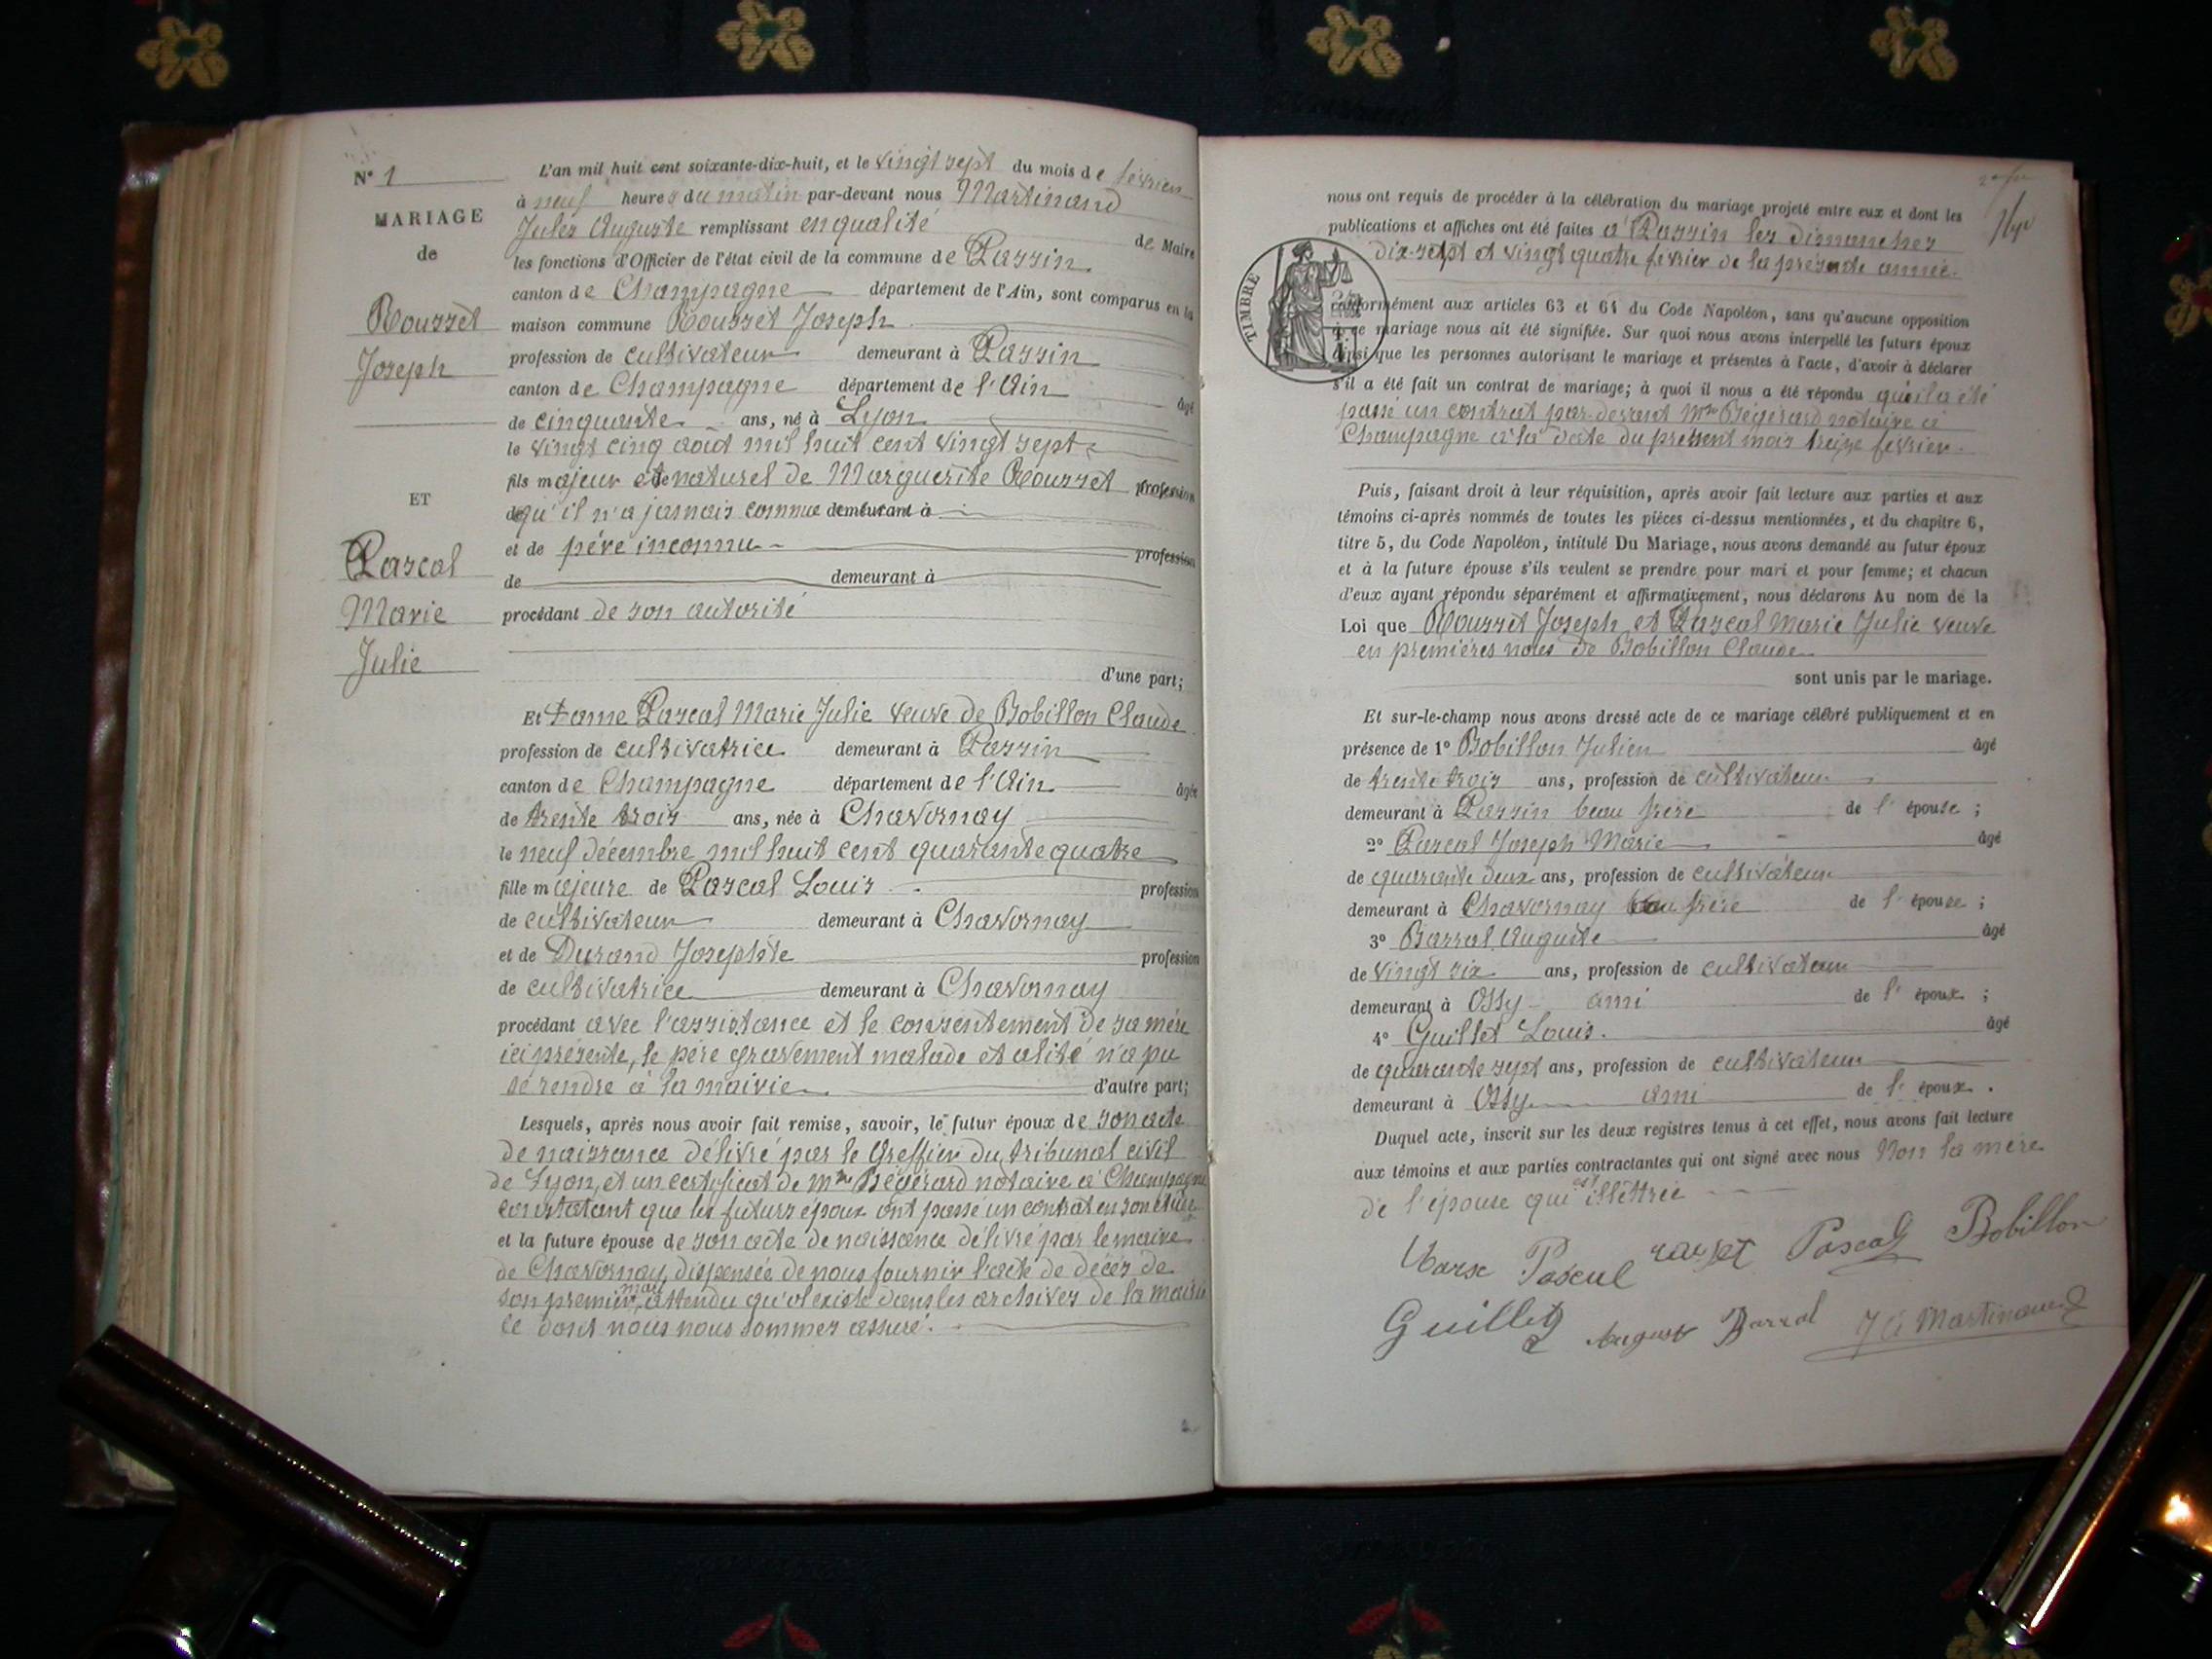 N° 1
MARIAGE
de
Rousset
Joseph
ET
Pascal
Marie
Julie
L'an mil huit cent soixante-dix-huit, et le vingt sept du mois de février
à neuf heures du matin par-devant nous Martinand
Jules Auguste remplissant en qualité de Maire
les fonctions d'Officier de l'état civil de la commune de Passin
canton de Champagne département de l'Ain, sont comparus en la
maison commune Rousset Joseph
profession de cultivateur demeurant à Passin
canton de Champagne département de l'Ain âgé
de cinquante ans, né à Lyon
le vingt cinq aout mil huit cent vingt sept
fils majeur et naturel de Marguerite Rousset profession
qu'il n'a jamais connue demeurant à
et de père inconnu profession
de demeurant à
procédant de son autorité
d'une part;
Et Dame Pascal Marie Julie veuve de Bobillon Claude
profession de cultivatrice demeurant à Passin
canton de Champagne département de l'Ain âgée
de trente trois ans, née à Chavornay
le neuf décembre mil huit cent quarante quatre
fille majeure de Pascal Louis profession
de cultivateur demeurant à Chavornay
et de Durand Josephte profession
de cultivatrice demeurant à Chavornay
procédant avec l'assistance et le consentement de sa mère
ici présente, le père gravement malade et alité n'a pu
se rendre à la mairie d'autre part;
Lesquels, après nous avoir fait remise, savoir, le futur époux de son acte
de naissance délivré par le Greffier du tribunal civil
de Lyon, et un certificat de Mtre Bégérard notaire à Champagne
constatant que les futurs époux ont passé un contrat en son étude
et la future épouse de son acte de naissance délivré par le maire
de Chavornay, dispensée de nous fournir l'acte de décès de
son premier mari, attendu qu'il existe dans les archives de la mairie
ce dont nous nous sommes assuré.
nous ont requis de procéder à la célébration du mariage projeté entre eux et dont les
publications et affiches ont été faites à Passin les dimanches
dix-sept et vingt quatre février de la présente année
TIMBRE
conformément aux articles 63 et 64 du Code Napoléon, sans qu'aucune opposition
à ce mariage nous ait été signifiée. Sur quoi nous avons interpellé les futurs époux
ainsi que les personnes autorisant le mariage et présentes à l'acte, d'avoir à déclarer
s'il a été fait un contrat de mariage; à quoi il nous a été répondu qu'il a été
passé un contrat par-devant Mtre Bégérard notaire à
Champagne à la date du présent mois treize février.
Puis, faisant droit à leur réquisition, après avoir fait lecture aux parties et aux
témoins ci-après nommés de toutes les pièces ci-dessus mentionnées, et du chapitre 6,
titre 5, du Code Napoléon, intitulé Du Mariage, nous avons demandé au futur époux
et à la future épouse s'ils veulent se prendre pour mari et pour femme; et chacun
d'eux ayant répondu séparément et affirmativement, nous déclarons Au nom de la
Loi que Rousset Joseph et Pascal Marie Julie veuve
en premières noces de Bobillon Claude
sont unis par le mariage.
Et sur-le-champ nous avons dressé acte de ce mariage célébré publiquement et en
présence de 1° Bobillon Julien âgé
de trente trois ans, profession de cultivateur
demeurant à Passin beau frère de l'épouse;
2° Pascal Joseph Marie âgé
de quarante deux ans, profession de cultivateur
demeurant à Chavornay frère de l'épouse;
3° Barral Auguste âgé
de vingt six ans, profession de cultivateur
demeurant à Ossy ami de l'époux;
4° Guillet Louis. âgé
de quarante sept ans, profession de cultivateur
demeurant à Ossy ami de l'époux.
Duquel acte, inscrit sur les deux registres tenus à cet effet, nous avons fait lecture
aux témoins et aux parties contractantes qui ont signé avec nous Non la mère
de l'épouse qui est illettrée
Pascal Bobillon
Guillet August Barral J A Martinand